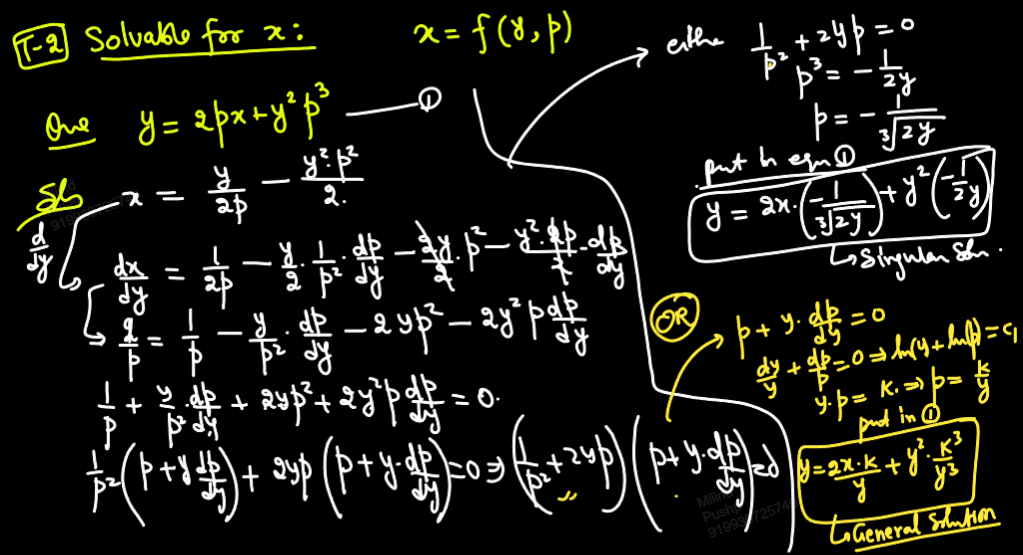 T-2 Solvable for x : x = f(y, p)
Que y = 2px + y²p³ — ①
Sol x = y/2p - y²·p²/2.
d/dy
dx/dy = 1/2p - y/2 · 1/p² · dp/dy - 2y/2 · p² - y²·2p/2 · dp/dy
2/p = 1/p - y/p² · dp/dy - 2yp² - 2y²p dp/dy
1/p + y/p² · dp/dy + 2yp² + 2y²p dp/dy = 0.
1/p² (p + y dp/dy) + 2yp (p + y·dp/dy) = 0 ⇒ (1/p² + 2yp) (p + y·dp/dy) = 0
eithe 1/p² + 2yp = 0
p³ = - 1/2y
p = - 1/∛2y
put in eqn ①
y = 2x·(-1/∛2y) + y² (-1/2y)
↳ Singular Soln.
OR
p + y·dp/dy = 0
dy/y + dp/p = 0 ⇒ ln(y) + ln(p) = c₁
y·p = K. ⇒ p = K/y
put in ①
y = 2x·K/y + y²·K³/y³
↳ General Solution